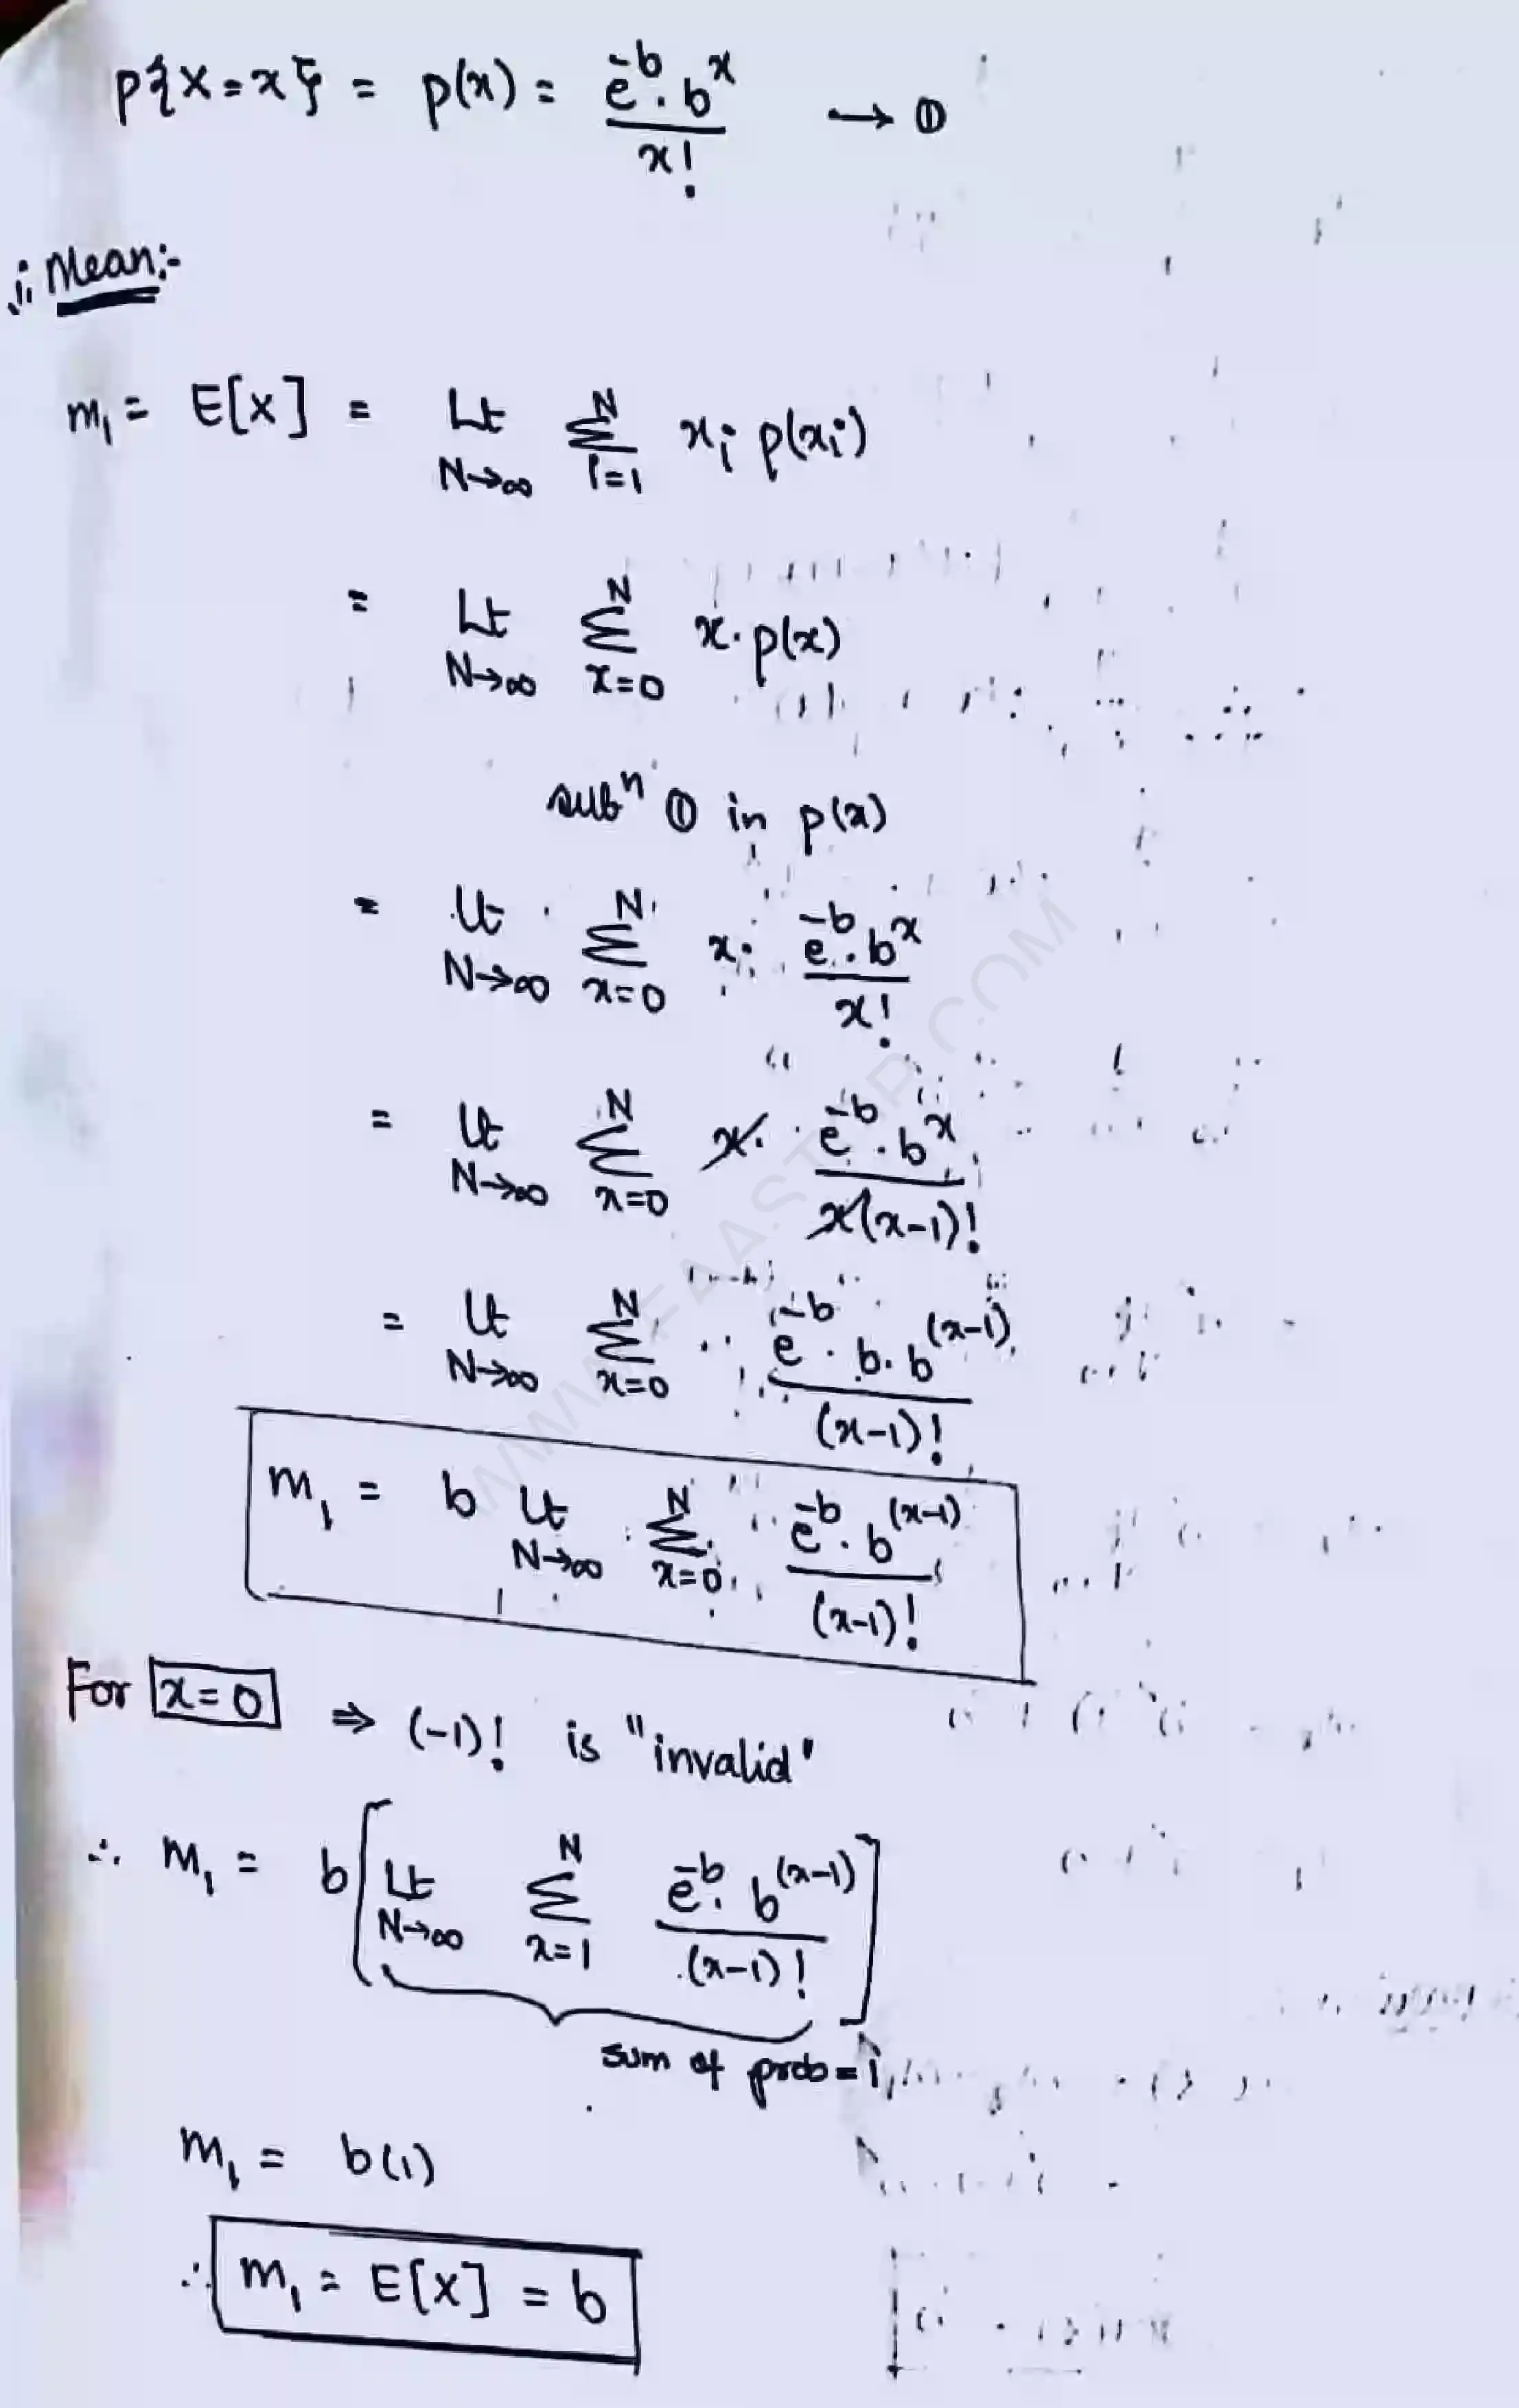 P{X=x} = p(x) = e^-b . b^x / x! → ①
i. Mean:-
m₁ = E[X] = Lt N→∞ Σ i=1 N xᵢ p(xᵢ)
= Lt N→∞ Σ x=0 N x. p(x)
subⁿ ① in p(x)
= Lt N→∞ Σ x=0 N x. e^-b . b^x / x!
= Lt N→∞ Σ x=0 N x. e^-b . b^x / x(x-1)!
= Lt N→∞ Σ x=0 N e^-b . b. b^(x-1) / (x-1)!
m₁ = b Lt N→∞ Σ x=0 N e^-b . b^(x-1) / (x-1)!
For x=0 ⇒ (-1)! is "invalid"
∴ m₁ = b[Lt N→∞ Σ x=1 N e^-b . b^(x-1) / (x-1)!]
sum of prob = 1
m₁ = b(1)
∴ m₁ = E[X] = b